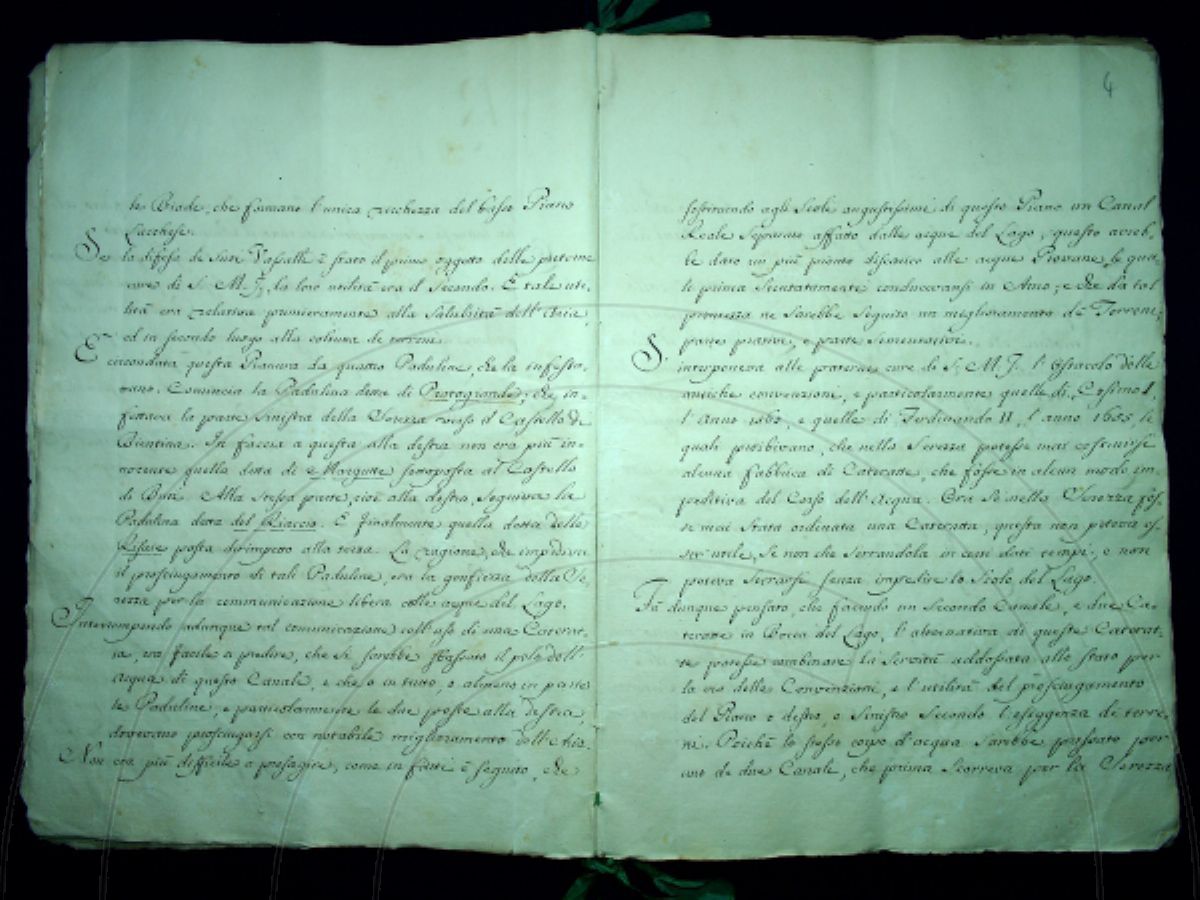 le Biade, che formano l'unica ricchezza del basso Piano
Lucchese.
Se la difesa de suoi Vassalli è stato il primo oggetto delle paterne
cure di S. M. I., la loro utilità era il Secondo. E tale uti-
lità era relativa primieramente alla Salubrità dell'Aria,
ed in secondo luogo alla coltura de terreni.
E circondata questa Pianura da quattro Paduline, che la infesta-
vano. Comincia la Padulina detta di Pratogrande, che in-
fettava la parte sinistra della Serezza verso il Castello di
Bientina. In faccia a questa alla destra non era più in-
nocente quella detta di sottoposta al Castello
di Buti. Alla stessa parte, cioè alla destra, seguiva la
Padulina detta del . E finalmente quella detta delle
posta dirimpetto alla terza. La ragione, che impediva
il prosciugamento di tali Paduline, era la gonfiezza della Se-
rezza per la communicazione libera colle acque del Lago.
Interrompendo adunque tal comunicazione coll'uso di una Caterat-
ta, era facile a vedere, che si sarebbe sbassato il pelo dell'
Acqua di questo Canale, e che o in tutto, o almeno in parte
le Paduline, e particolarmente le due poste alla destra,
dovevano prosciugarsi con notabile miglioramento dell'Aria.
Non era più difficile a presagire, come in fatti è seguito, che
4
sostituendo agli Scoli angustissimi di questo Piano un Canal
Reale separato affatto dalle acque del Lago, questo avreb-
be dato un più pronto discarico alle acque Piovane, le qua-
li prima stentatamente conducevansi in Arno; e che da tal
prontezza ne sarebbe seguito un miglioramento de Terreni,
parte prativi, e parte sementativi.
S. interponeva alle paterne cure di S. M. I. l'ostacolo delle
antiche convenzioni, e particolarmente quelle di Cosimo I.
l'Anno e quelle di Ferdinando II. l'anno le
quali proibivano, che nella Serezza potesse mai costruirsi
alcuna fabbrica di Cateratte, che fosse in alcun modo im-
peditiva del Corso dell'Acqua. Ora se nella Serezza fos-
se mai stata ordinata una Cateratta, questa non poteva es-
ser utile, se non che serrandola in certi dati tempi, e non
poteva serrarsi senza impedire lo Scolo del Lago.
Fu dunque pensato, che facendo un secondo Canale, e due Ca-
teratte in Bocca del Lago, l'alternativa di queste Caterat-
te potesse combinare la servitù addossata allo stato per
la via delle Convenzioni, e l'utilità del prosciugamento
del Piano o destro, o sinistro secondo l'esiggenza di terre-
ni. Poichè lo stesso corpo d'acqua sarebbe passato per
uno de due Canale, che prima scorreva per la Serezza